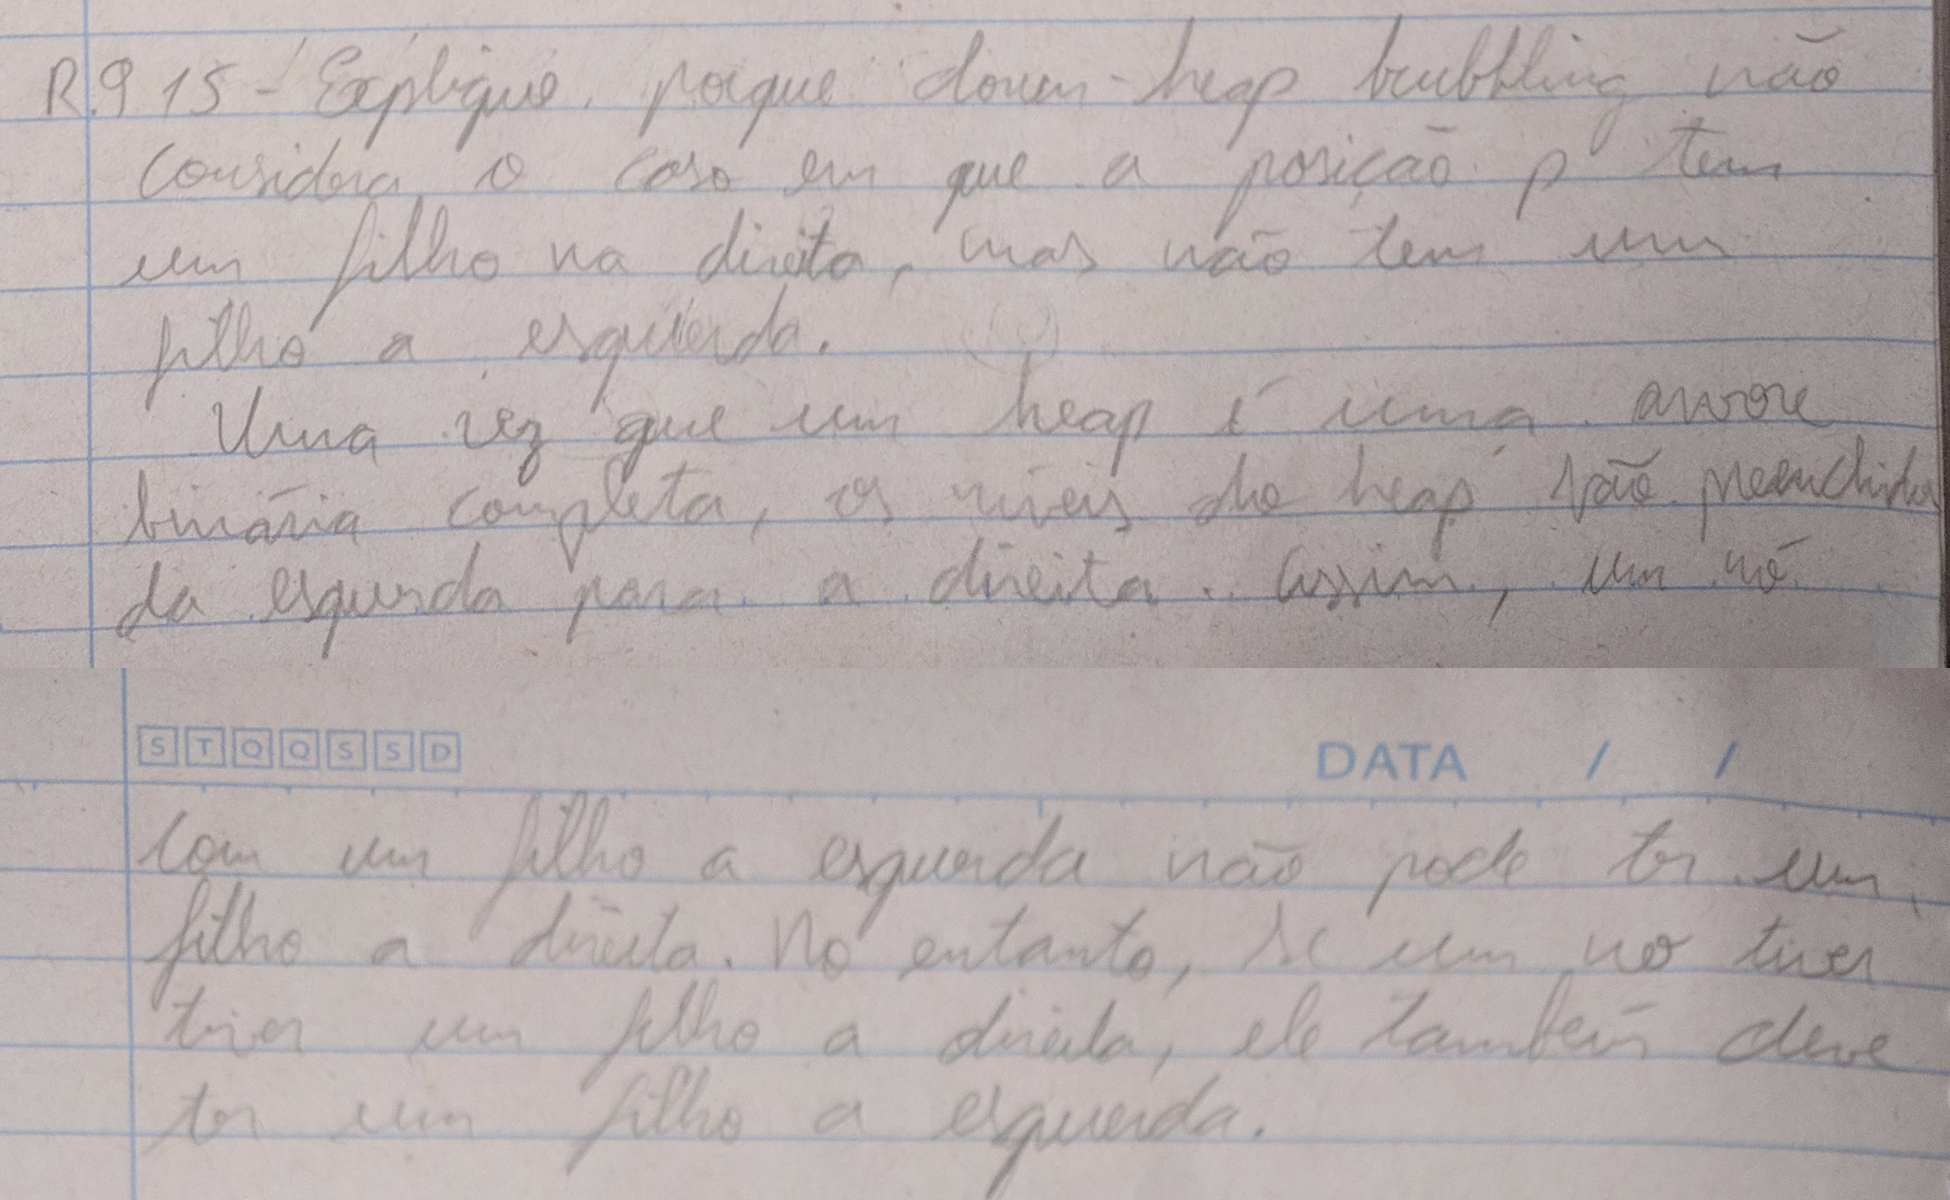 R.9 15 - Explique porque down-heap bubbling não
considera o caso em que a posição p tem
um filho na direita, mas não tem um
filho a esquerda.
Uma vez que um heap é uma arvore
binária completa, os níveis do heap são preenchidos
da esquerda para a direita. Assim, um nó
S T Q Q S S D
DATA / /
com um filho a esquerda não pode ter um
filho a direita. No entanto, se um no tiver
tiver um filho a direita, ele também deve
ter um filho a esquerda.